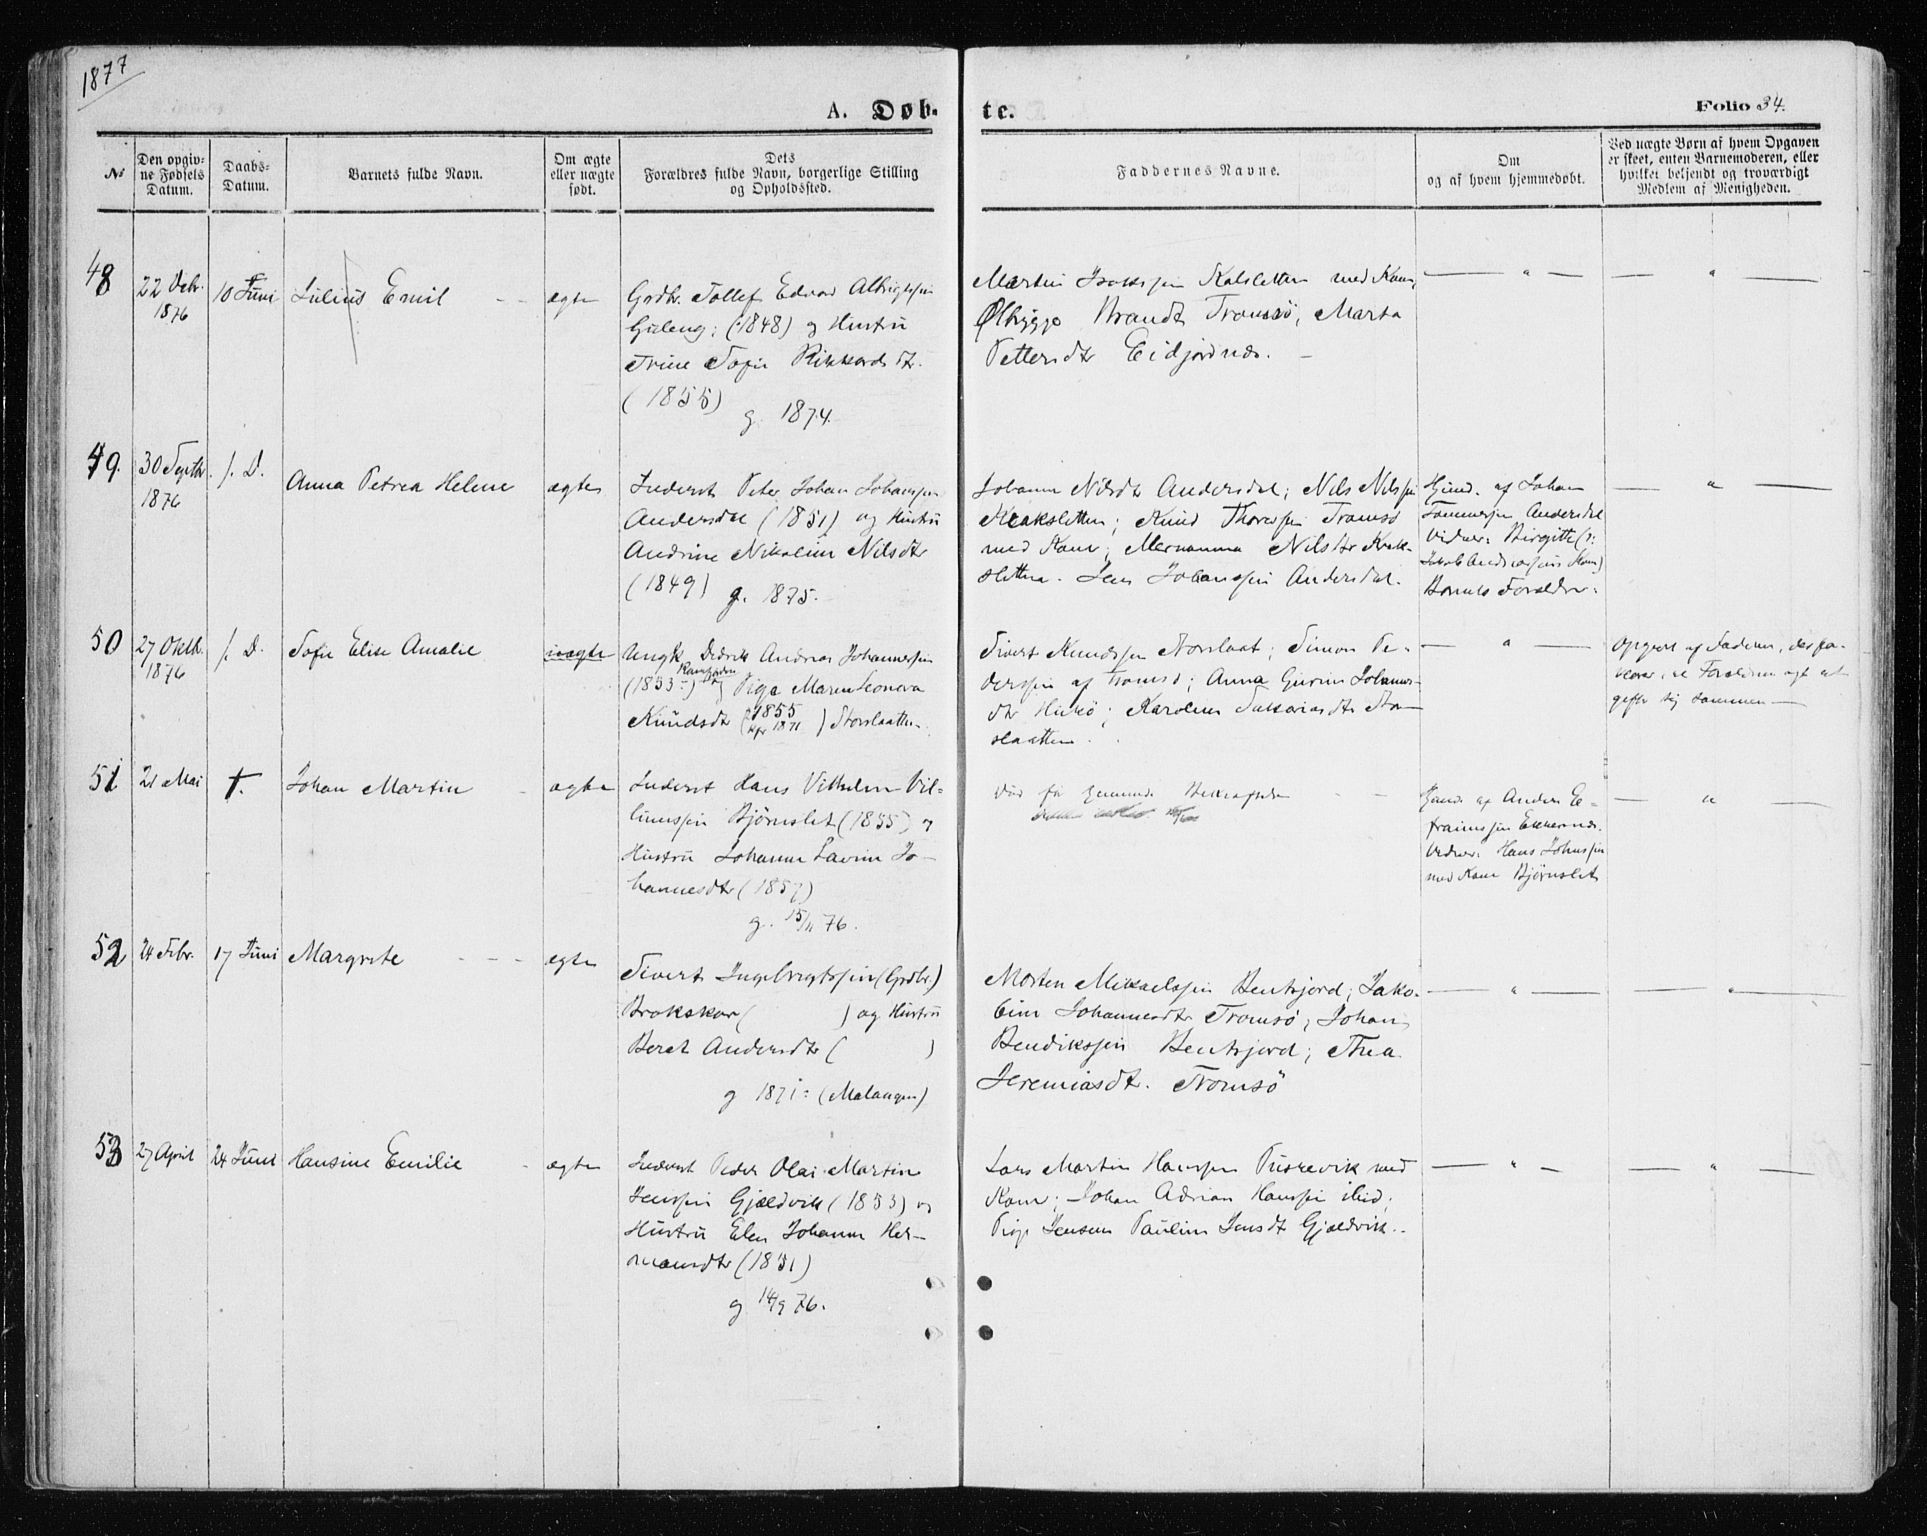 1877
A. Døb-
te.
Folio 34.
No
Den opgiv-
ne Fødsels
Datum.
Daabs-
Datum.
Barnets fulde Navn.
Om ægte
eller uægte
født.
Dets
Forældres fulde Navn, borgerlige Stilling
og Opholdssted.
Faddernes Navne.
Om
og af hvem hjemmedøbt.
Ved uægte Børn af hvem Opgaven
er skeet, enten Barnemoderen, eller
hvilket bekjendt og troværdigt
Medlem af Menigheden.
48
22 Debr.
1876
10 Juni
Julius Emil
ægte
Grdbr. Tollef Edvard Albrigtssen
(1848) og Hustru
Trine Sofie Rikkardsdtr.
(1855)
g. 1874.
Martin Isakssen Kalsletten med Kone,
Brandt Tromsø, Marta
Pettersdtr Eidjordnæs.
49.
30 Septbr
1876
s. D.
Anna Petrea Helene
ægte
Inderst Peter Johan Johanssen
Andersdal (1851) og Hustru
Andrine Nikoline Nilsdtr
(1849) g. 1875.
Johanna Nilsdtr Andersdal; Nils Nilssen
Kraksletten; Knud Thoressen Tromsø
med Kone; Nilsdtr Krak-
sletten. Jens Johanssen Andersdal.
Hjmd. af Johan
Andersdal
Vidner: Birgitte (:
Kone)
Barnets Forældre.
50
27 Oktb.
1876
s. D.
Sofie Elise Amalie
uægte
Ungk. Didrik Andreas Johannessen
(1853) Ramfjorden og Pige Maren Leonora
Knudsdtr (1855 kfr 1871) Storslaatten.
Sivert Knudssen Storslaat; Simon Pe-
derssen af Tromsø; Anna Gurine Johannes-
dtr; Karoline Sakariasdtr Stor-
slaatten.
Opgivet af Faderen, desfor-
uden, at Forældrene agt at
gifte sig sammen
51
21 Mai
†.
Johan Martin
ægte
Inderst Hans Vilhelm Vil-
lumssen Bjørnslet (1855) og
Hustru Johanna Lavine Jo-
hannesdtr (1857)
g. 15/11 76.
Død før Bekræftelse
Hjmd. af Anders E-
fraimssen
Vidner: Hans Johnssen
med Kone Bjørnslet
52
24 Febr.
17 Juni
Margrete
ægte
Sivert Ingebrigtssen (Grdbr.)
Brokskar ( ) og Hustru
Beret Andersdtr ( )
g 1871: (Malangen)
Morten Mikaelssen Bentsjord; Jako-
bine Johannesdtr Tromsø; Johan
Bendikssen Bentsjord; Thea
Jeremiasdtr. Tromsø
53
27 April
24 Juni
Hansine Emilie
ægte
Inderst Peder Olai Martin
Jenssen Gjældvik (1853) og
Hustru Elen Johanna Her-
mansdtr (1851)
g 14/9 76.
Lars Martin Hanssen med
Kone; Johan Adrian Hanssen ibid;
Pige Pauline Jensdtr Gjæld­vik.